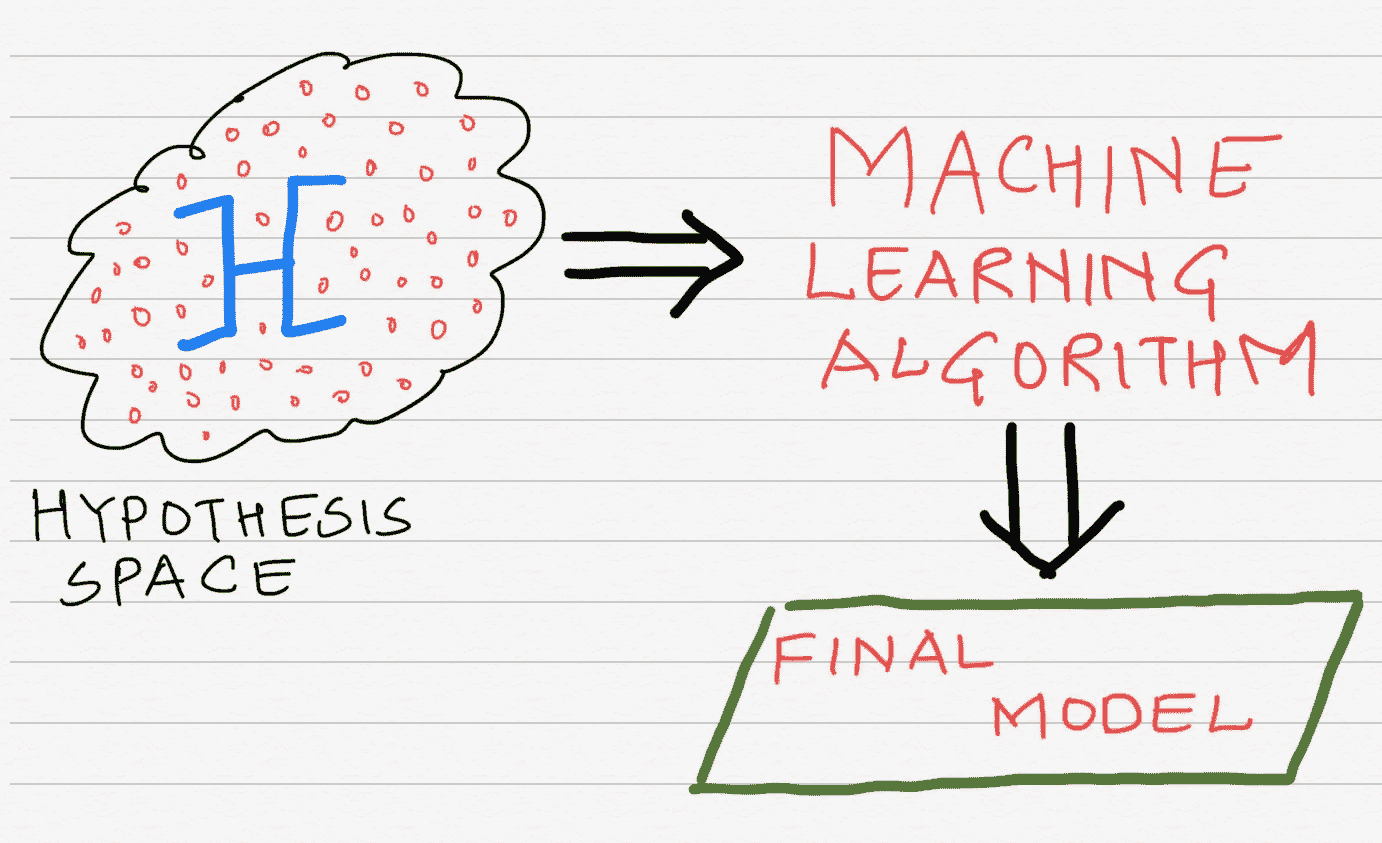 H
HYPOTHESIS
SPACE
MACHINE
LEARNING
ALGORITHM
FINAL
MODEL